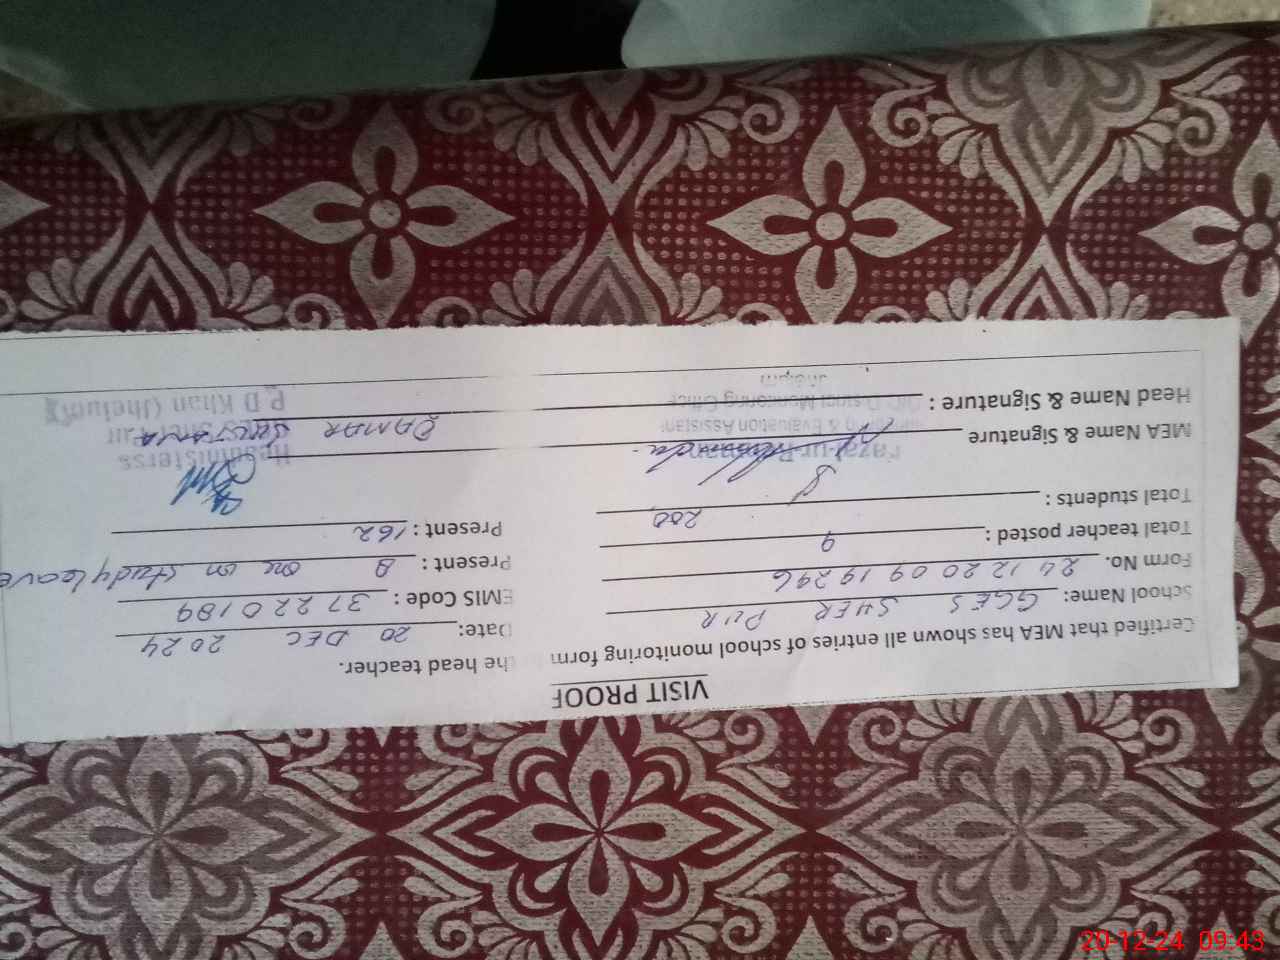 VISIT PROOF
Certified that MEA has shown all entries of school monitoring form the head teacher.
School Name: GGES SHER PUR Date: 20 DEC 2024
Form No. 24 12 20 09 19 246 EMIS Code: 37220189
Total teacher posted: 9 Present: 8 one on study leave
Total students: 200 Present: 162
MEA Name & Signature
Monitoring & Evaluation Assistant
Head Name & Signature:
Headmistress
P.D Khan (Jhelum)
20-12-24 09:43